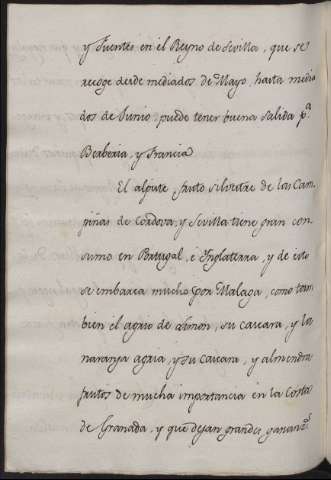 y Fuentes en el Reyno de Sevilla, que se
recoge desde mediados de Mayo, hasta media
dos de Junio puede tener buena salida p.ª
Berberia, y Francia
El alpiste, fruto silvestre de los Cam-
piñas de Cordova, y Sevilla tiene gran con
sumo en Portugal, e Inglaterra, y de esto
se embarca mucho por Malaga, como tam
bien el agrio de Limon, su cascara, y la
naranja agria, y su cascara, y almendra
frutos de mucha importancia en la Costa
de Granada, y que dejan grandes gananz.s